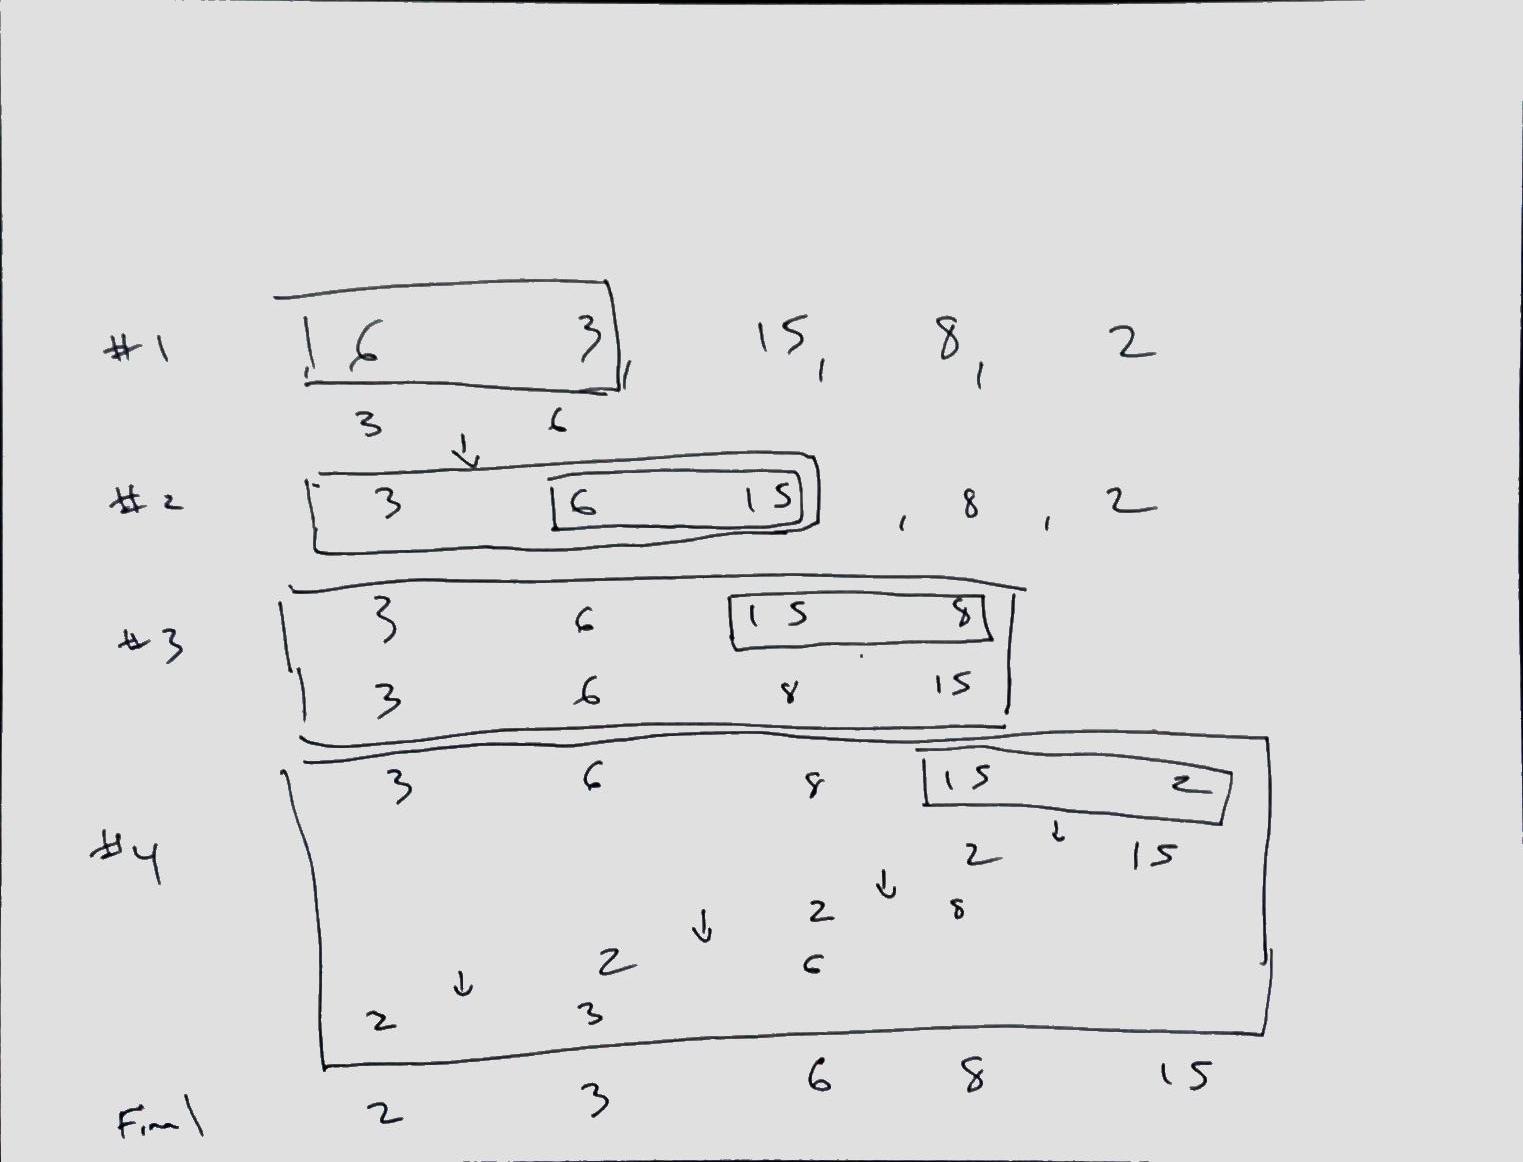 #1 6 3, 15, 8, 2
3 6
↓
#2 3 6 15 , 8 , 2
3 6 15 8
#3
3 6 8 15
3 6 8 15 2
↓
#4 2 15
↓
2 8
↓
2 6
↓
2 3
Final 2 3 6 8 15